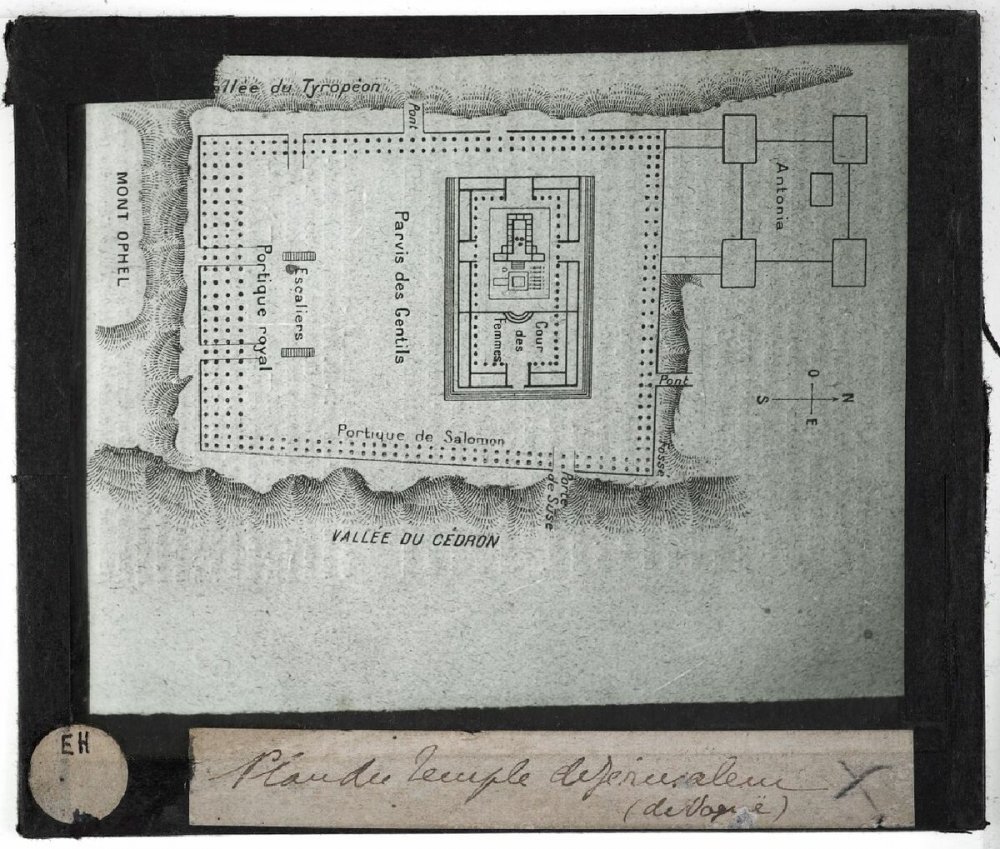 allée du Tyropéon
Pont
MONT OPHEL
Antonia
Parvis des Gentils
Portique royal
Escaliers
Cour
des
Femmes
O
N
S
E
Pont
Fossé
Portique de Salomon
Porte
de Suse
VALLÉE DU CÉDRON
EH
Plan du Temple de Jérusalem X
(de Vogüé)